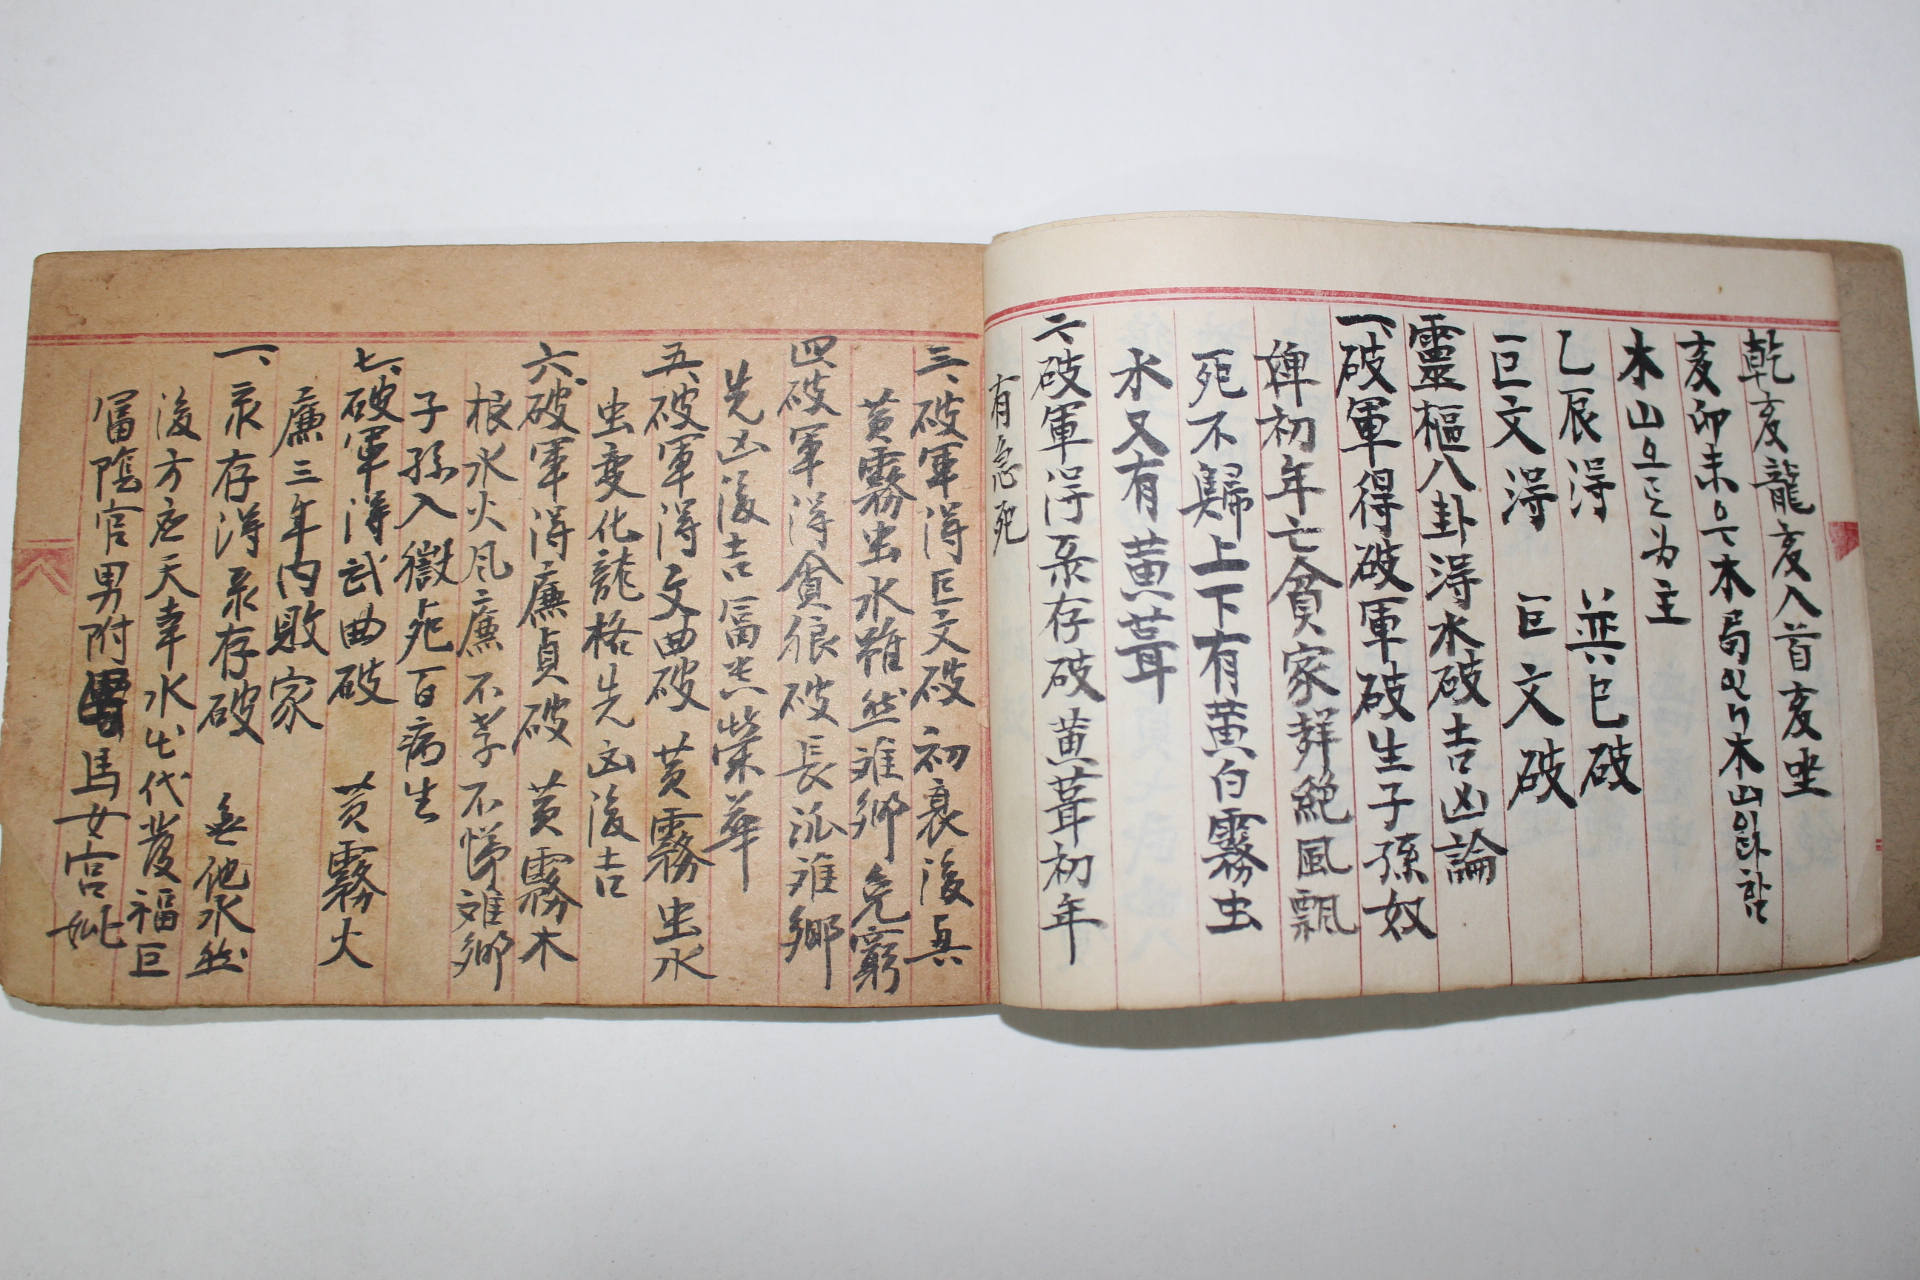 乾亥龍亥入首亥坐
亥卯未은木局인니木山이라함
木山으로为主
乙辰淂 巽巳破
巨文淂 巨文破
靈樞八卦淂水破吉凶論
一、破軍得破軍破生子孫奴
婢初年亡貧家群絕風飄
死不歸上下有黃白霧虫
水又有黃葺
六破軍淂 存破黃葺初年
有急死
三、破軍淂巨文破 初衰後
黃霧虫水雖然 鄉免窮
四破軍淂貪狼破長 鄉
先凶後吉冨 榮華
五、破軍淂文曲破 黃霧虫水
虫变化龍格先凶後吉
六、破軍淂廉貞破 黃霧木
根水火风廉不孝不悌 鄉
子孫入獄 百病生
七、破軍淂武曲破 黃霧火
廉三年内敗家
一、 存淂 存破 無他水然
後方 天 水 代發福巨
冨陰官男附 馬女宮妣